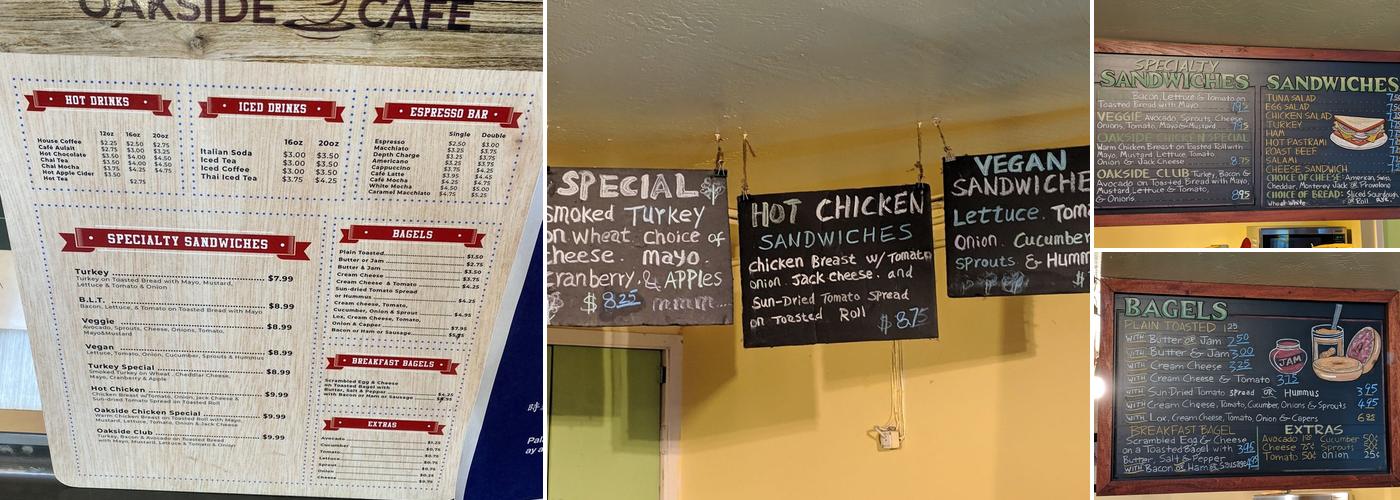 OAKSIDE CAFE
HOT DRINKS
12oz 16oz 20oz
House Coffee $2.25 $2.50 $2.75
Café Aulait $2.75 $3.25 $3.75
Hot Chocolate $3.50 $4.00 $4.50
Chai Tea $3.50 $4.00 $4.50
Chai Mocha $3.75 $4.25 $4.75
Hot Apple Cider $3.50
Hot Tea $2.75
ICED DRINKS
16oz 20oz
Italian Soda $3.00 $3.50
Iced Tea $3.00 $3.50
Iced Coffee $3.00 $3.50
Thai Iced Tea $3.75 $4.25
ESPRESSO BAR
Single Double
Espresso $2.50 $3.00
Macchiato
Depth Charge
Americano
Cappuccino
Café Latte
Café Mocha
White Mocha
Caramel Macchiato
SPECIALTY SANDWICHES
Turkey $7.99
Turkey on Toasted Bread with Mayo, Mustard,
Lettuce & Tomato & Onion
B.L.T. $8.99
Bacon, Lettuce, & Tomato on Toasted Bread with Mayo
Veggie $8.99
Avocado, Sprouts, Cheese, Onions, Tomato,
Mayo&Mustard
Vegan $8.99
Lettuce, Tomato, Onion, Cucumber, Sprouts & Hummus
Smoked Turkey $8.99
Turkey on Wheat, Cheddar Cheese,
Mayo, Cranberry & Apple
Hot Chicken $9.99
Chicken Breast w/Tomato, Onion, Jack Cheese &
Sun-dried Tomato Spread on Toasted Roll
Oakside Chicken Special $9.99
Warm Chicken Breast on Toasted Roll with Mayo,
Mustard, Lettuce, Tomato, Onion & Jack Cheese
Oakside Club $9.99
Turkey, Bacon & Avocado on Toasted Bread
with Mayo, Mustard, Lettuce & Tomato & Onion
BAGELS
Plain Toasted $1.50
Butter or Jam $2.75
Butter & Jam $3.50
Cream Cheese $3.75
Cream Cheese & Tomato $4.25
Sun-dried Tomato Spread
or Hummus $4.25
Cream Cheese, Tomato,
Cucumber, Onion & Sprout $4.95
Lox, Cream Cheese, Tomato,
Onion & Capper $7.95
Bacon or Ham or Sausage
BREAKFAST BAGELS
Scrambled Egg & Cheese
on Toasted Bagel with
Butter, Salt & Pepper $4.25
with Bacon or Ham or Sausage
EXTRAS
Avocado $1.25
Cucumber $0.75
Tomato $0.75
Lettuce $0.75
Sprout $0.75
Onion $0.75
Cheese $0.75
SPECIAL
Smoked Turkey
on Wheat. Choice of
cheese. mayo.
Cranberry, & APPles
$ 8.25 mmm...
HOT CHICKEN
SANDWICHES
chicken Breast w/ Tomato
onion. Jack cheese. and
Sun-Dried Tomato Spread
on Toasted Roll $8.75
VEGAN
SANDWICHE
Lettuce. Toma
Onion. Cucumber
sprouts & Humm
$
SPECIALTY
SANDWICHES
Bacon, Lettuce & Tomato on
Toasted Bread with Mayo 7.95
VEGGIE Avocado, Sprouts, Cheese,
Onions, Tomato, Mayo & Mustard 7.95
OAKSIDE CHICKEN SPECIAL
Warm Chicken Breast on Toasted Roll with
Mayo, Mustard, Lettuce, Tomato,
Onion & Jack Cheese 8.75
OAKSIDE CLUB Turkey, Bacon &
Avocado on Toasted Bread with Mayo,
Mustard, Lettuce & Tomato,
& Onions. 8.95
SANDWICHES
TUNA SALAD
EGG SALAD
CHICKEN SALAD
TURKEY
HAM
HOT PASTRAMI
ROAST BEEF
SALAMI
CHEESE SANDWICH
CHOICE OF CHEESE: American, Swiss,
Cheddar, Monterey Jack or Provolone
CHOICE OF BREAD: Sliced Sourdough
Wheat White or Roll RYE
BAGELS
PLAIN TOASTED 1.25
WITH Butter OR Jam 2.50
WITH Butter & Jam 3.00
WITH Cream Cheese 3.25
WITH Cream Cheese & Tomato 3.75
WITH Sun-Dried Tomato spread OR Hummus 3.95
WITH Cream Cheese, Tomato, Cucumber, Onions & Sprouts 4.95
WITH Lox, Cream Cheese, Tomato, Onion & Capers
JAM
BREAKFAST BAGEL
Scrambled Egg & Cheese
on a Toasted Bagel with 3.95
Butter, Salt & Pepper
WITH Bacon OR Ham OR Sausage
EXTRAS
Avocado Cucumber 50¢
Cheese 75¢ Sprouts 50¢
Tomato 50¢ Onion 25¢